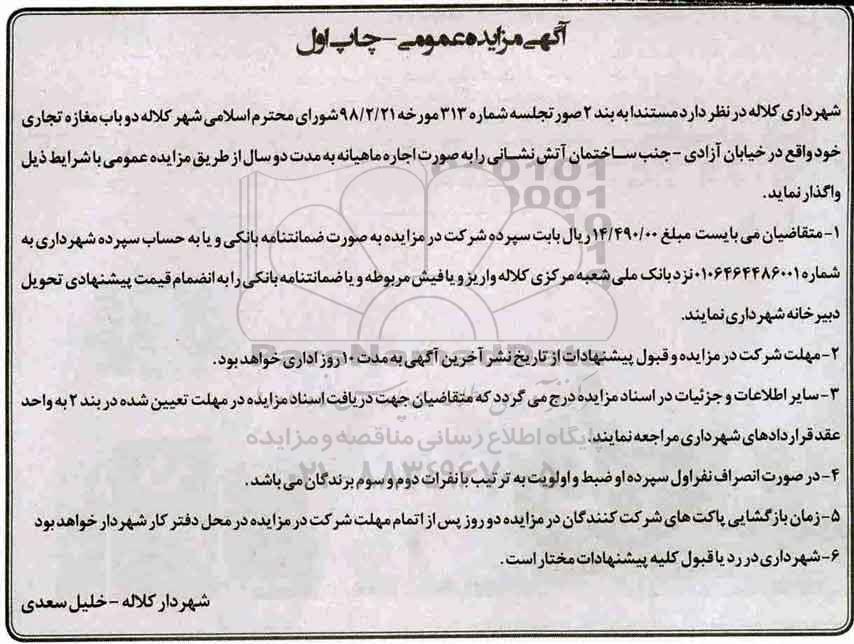 آگهی مزایده عمومی - چاپ اول
شهرداری کلاله در نظر دارد مستندا به بند ۲ صورتجلسه شماره ۳۱۳ مورخه ۹۸/۲/۲۱ شورای محترم اسلامی شهر کلاله دو باب مغازه تجاری
خود واقع در خیابان آزادی - جنب ساختمان آتش نشانی را به صورت اجاره ماهیانه به مدت دو سال از طریق مزایده عمومی با شرایط ذیل
واگذار نماید.
۱- متقاضیان می بایست مبلغ ۱۴/۴۹۰/۰۰ ریال بابت سپرده شرکت در مزایده به صورت ضمانتنامه بانکی و یا به حساب سپرده شهرداری به
شماره ۰۱۰۶۴۶۴۴۸۶۰۰۱ نزد بانک ملی شعبه مرکزی کلاله واریز و یا فیش مربوطه و یا ضمانتنامه بانکی را به انضمام قیمت پیشنهادی تحویل
دبیرخانه شهرداری نمایند.
۲- مهلت شرکت در مزایده و قبول پیشنهادات از تاریخ نشر آخرین آگهی به مدت ۱۰ روز اداری خواهد بود.
۳- سایر اطلاعات و جزئیات در اسناد مزایده درج می گردد که متقاضیان جهت دریافت اسناد مزایده در مهلت تعیین شده در بند ۲ به واحد
عقد قراردادهای شهرداری مراجعه نمایند.
پایگاه اطلاع رسانی مناقصه و مزایده
۴- در صورت انصراف نفر اول سپرده او ضبط و اولویت به ترتیب با نفرات دوم و سوم برندگان می باشد.
۵- زمان بازگشایی پاکت های شرکت کنندگان در مزایده دو روز پس از اتمام مهلت شرکت در مزایده در محل دفتر کار شهردار خواهد بود
۶- شهرداری در رد یا قبول کلیه پیشنهادات مختار است.
شهردار کلاله - خلیل سعدی